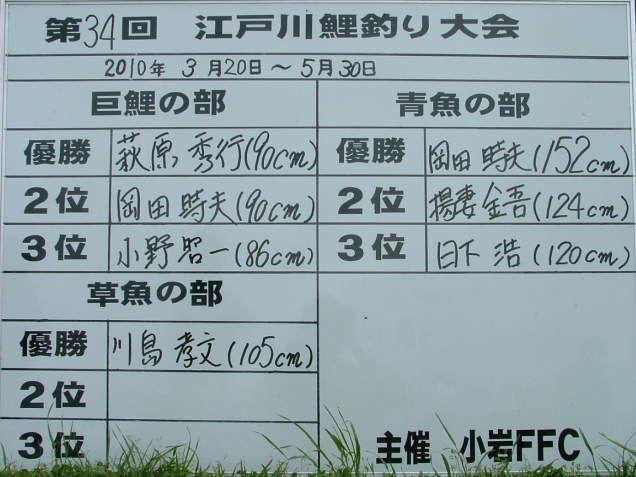 第34回 江戸川鯉釣り大会
2010年 3月20日〜5月30日
巨鯉の部
優勝 萩原 秀行(90cm)
2位 岡田 時夫(90cm)
3位 小野 昭一(86cm)
青魚の部
優勝 岡田 時夫(152cm)
2位 揚妻 金吾(124cm)
3位 日下 浩(120cm)
草魚の部
優勝 川島 孝文(105cm)
2位
3位
主催 小岩FFC